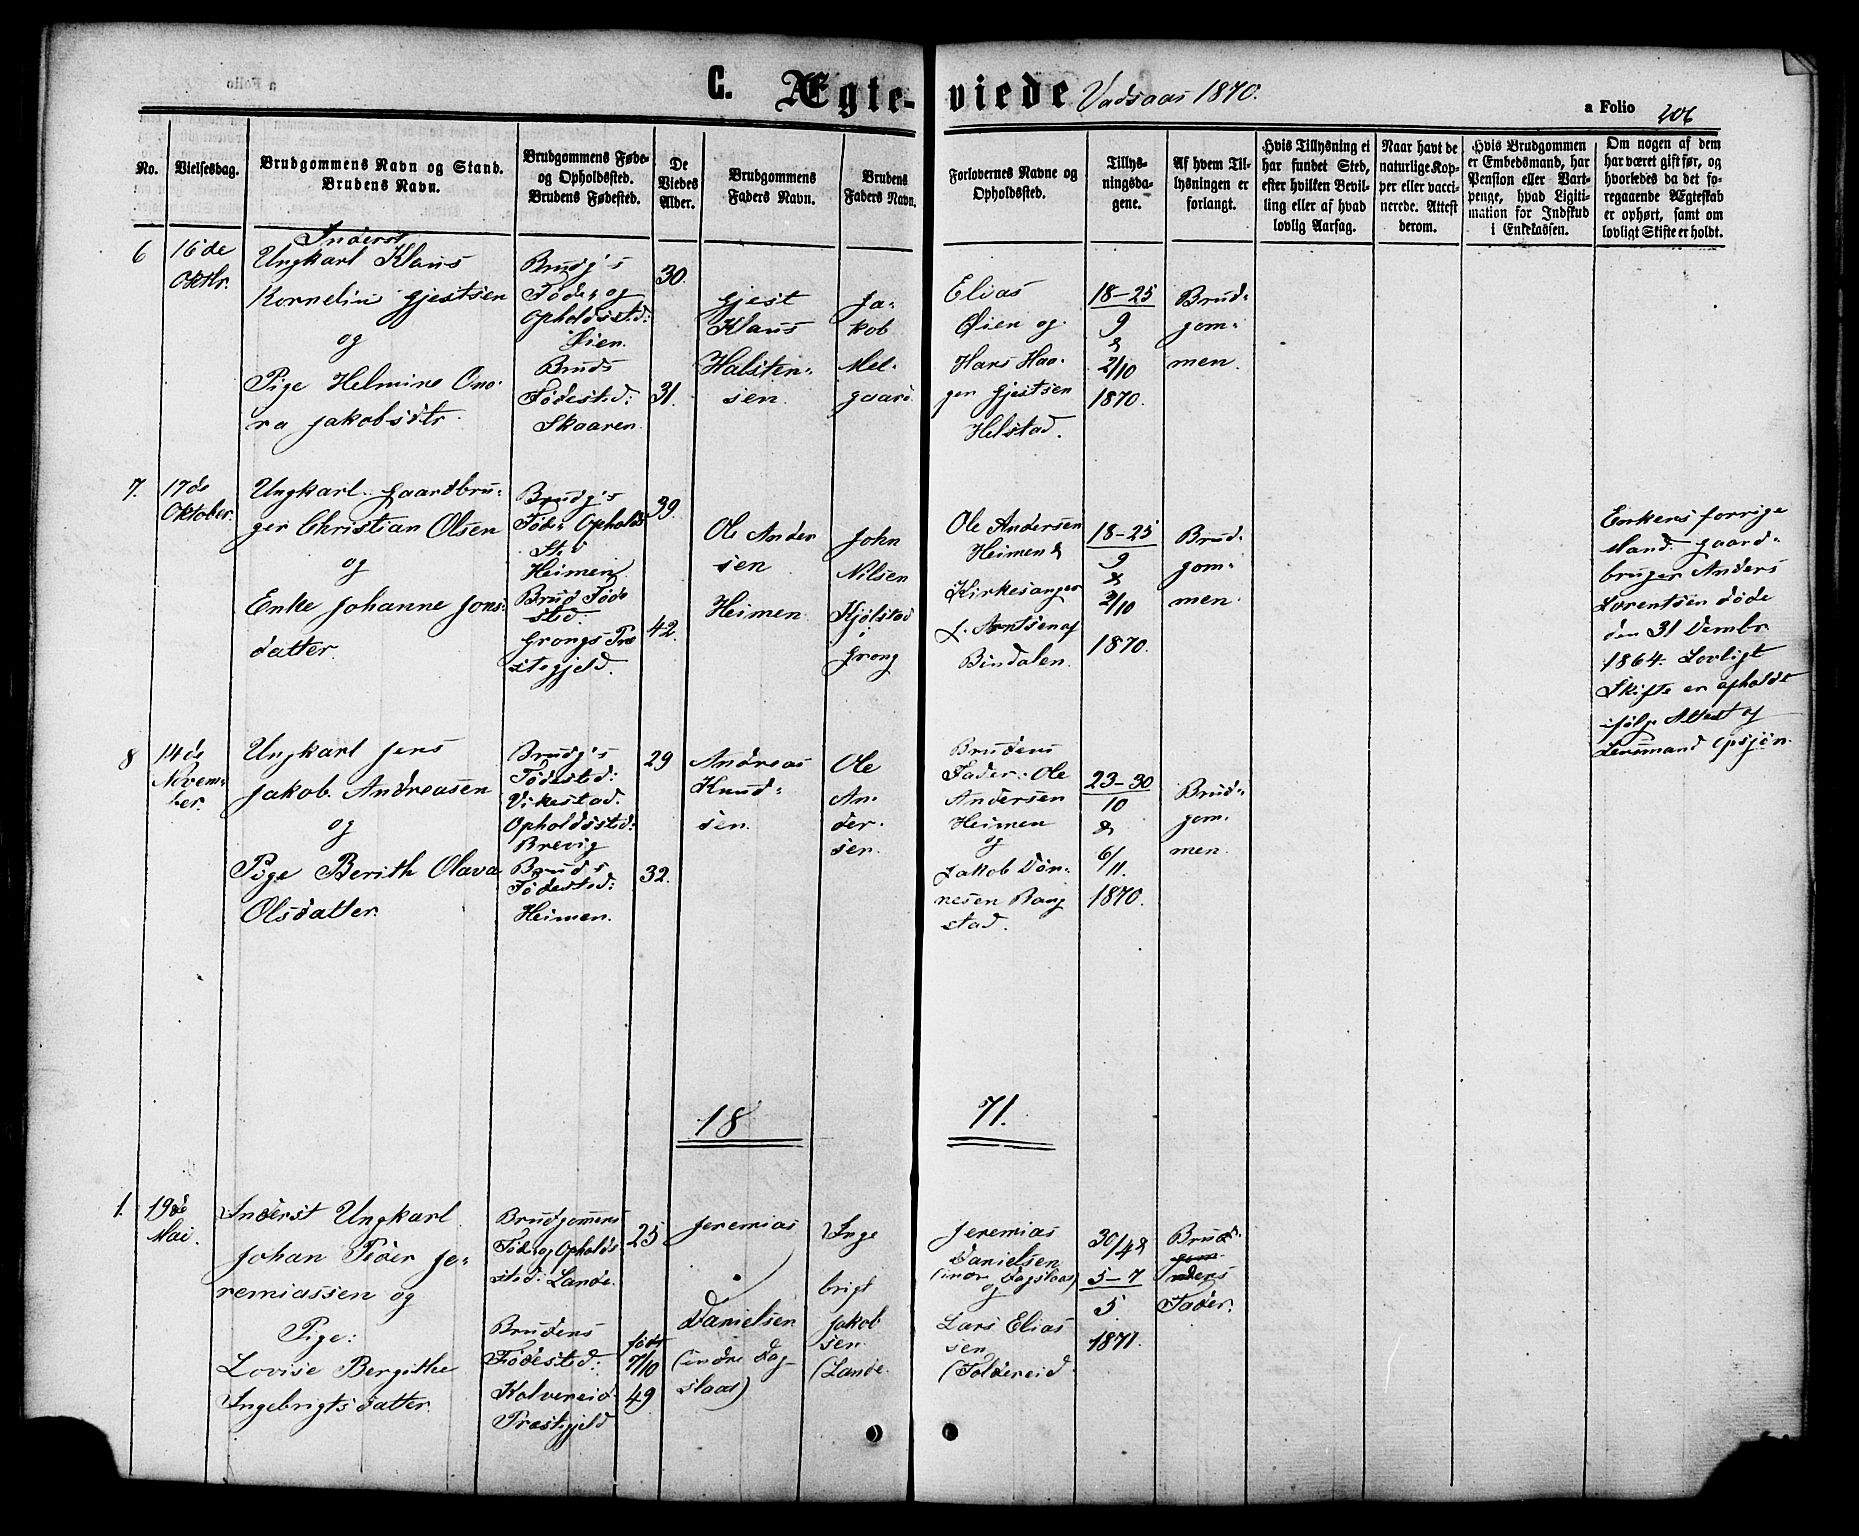 C. Ægte-viede Vadsaas 1870.
a Folio 206
No.
Vielsesdag.
Brudgommens Navn og Stand.
Brudens Navn.
Brudgommens Føde-
og Opholdssted.
Brudens Fødested.
De
Viedes
Alder.
Brudgommens
Faders Navn.
Brudens
Faders Navn.
Forlovernes Navne og
Opholdssted.
Tillys-
ningsda-
gene.
Af hvem Til-
lysningen er
forlangt.
Hvis Tillysning ei
har fundet Sted,
efter hvilken Bevil-
ling eller af hvad
lovlig Aarsag.
Naar havt de
naturlige Kop-
per eller vacci-
nerede. Attest
derom.
Hvis Brudgommen
er Embedsmand, har
Pension eller Vart-
penge, hvad Ligiti-
mation for Indskud
i Enkekassen.
Om nogen af dem
har været gift før, og
hvorledes da det fo-
regaaende Ægteskab
er ophørt, samt om
lovligt Skifte er holdt.
6
16de
Oktbr.
Inderst
Ungkarl Klaus
Kornelius Gjestsen
og
Pige Helmine Ono-
ra Jakobsdtr.
Brudg's
Føde- og
Opholdssted:
Øien.
Bruds
Fødested:
Skaaren.
30.
31.
Gjest
Klaus
Halsten-
sen.
Ja-
kob
Mel-
gaard
Elias
Øien og
Hans Haa-
gen Gjestsen
Helstad.
18-25
9
&
2/10
1870.
Brud-
gom-
men.
7.
17de
Oktober.
Ungkarl. Gaardbru-
ger Christian Olsen
og
Enke Johanne Jons-
datter.
Brudg's
Føde- Opholds
Sted
Heimen.
Brud Føde
sted.
Grongs Præ
stegjeld.
39.
42.
Ole Ander
sen
Heimen.
John
Nilsen
Kjølstad
i
Grong
Ole Andersen
Heimen &
Kirkesanger
L. Arntsen af
Bindalen.
18-25
9
&
2/10
1870.
Brud-
gom-
men.
Enkens forrige
Mand. Gaard-
bruger Anders
Lorentsen døde
den 31 Decmbr.
1864. Lovligt
Skifte er afholdt
ifølge Attest af
Lensmand Opsjøn.
8
14de
Novem-
ber.
Ungkarl Jens
Jakob Andreasen
og
Pige Berith Olava
Olsdatter.
Brudg's
Fødested:
Vikestad.
Opholdssted:
Brevig
Brud's
Fødested:
Heimen.
29
32.
Andreas
Knud-
sen.
Ole
An-
der-
sen.
Brudens
Fader: Ole
Andersen
Heimen
og
Jakob Døn-
nesen Rang
stad.
23-30
10
&
6/11.
1870.
Brud-
gom-
men.
18 71.
1.
19de
Mai.
Inderst Ungkarl
Johan Peder Je-
remiassen og
Pige:
Lovise Bergithe
Ingebrigtsdatter.
Brudgommens
Føde og Opholds-
sted: Lande.
Brudens
Fødested:
Kolvereid
Præstegjeld
25
født
7/10
49
Jeremias
Danielsen
(indre Dag-
slaas)
Inge
brigt
Jakob
sen.
(Lande.
Jeremias
Danielsen
(indr Dagslaas)
og
Lars Elias
sen
(Foldereid
30/4 &
5-7
5
1871.
Brud-
gom-
ndens
Fader.